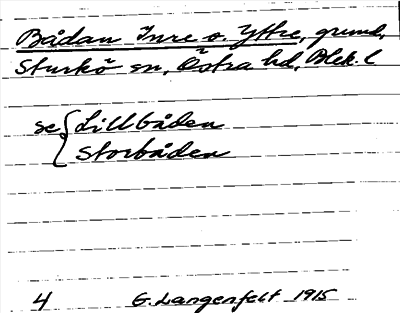 Bådan Inre o. Yttre, grund,
Sturkö sn, Östra hd, Blek. l
se { Lillbåden
Storbåden
4 G. Langenfelt 1915